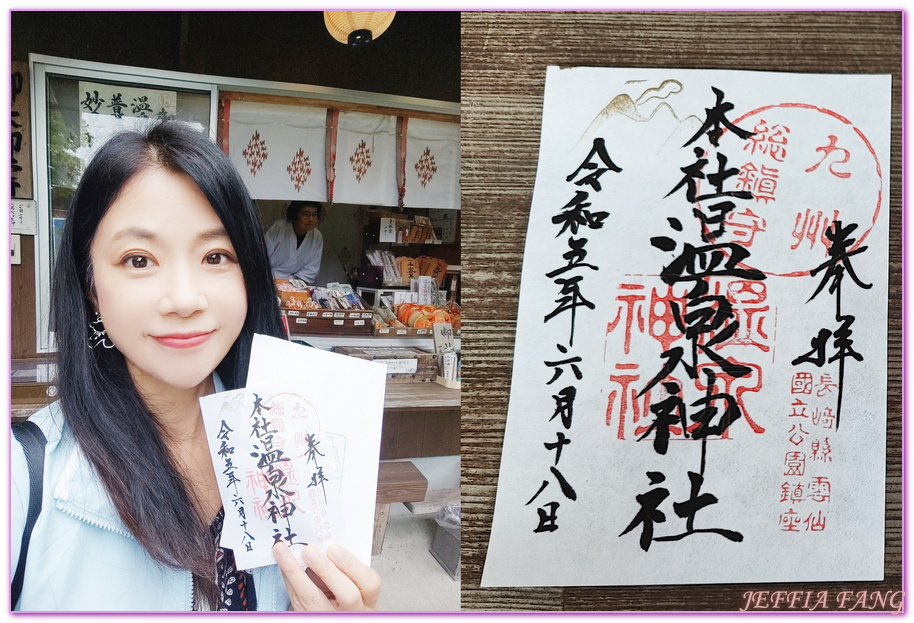 妙 普 溫
奉拝
九州
総鎮守
長崎縣雲仙
國立公園鎮座
本社温泉神社
温泉
神社
令和五年六月十八日
奉拝
九州
総鎮守
本社温泉神社
令和五年六月十八日
JEFFIA FANG